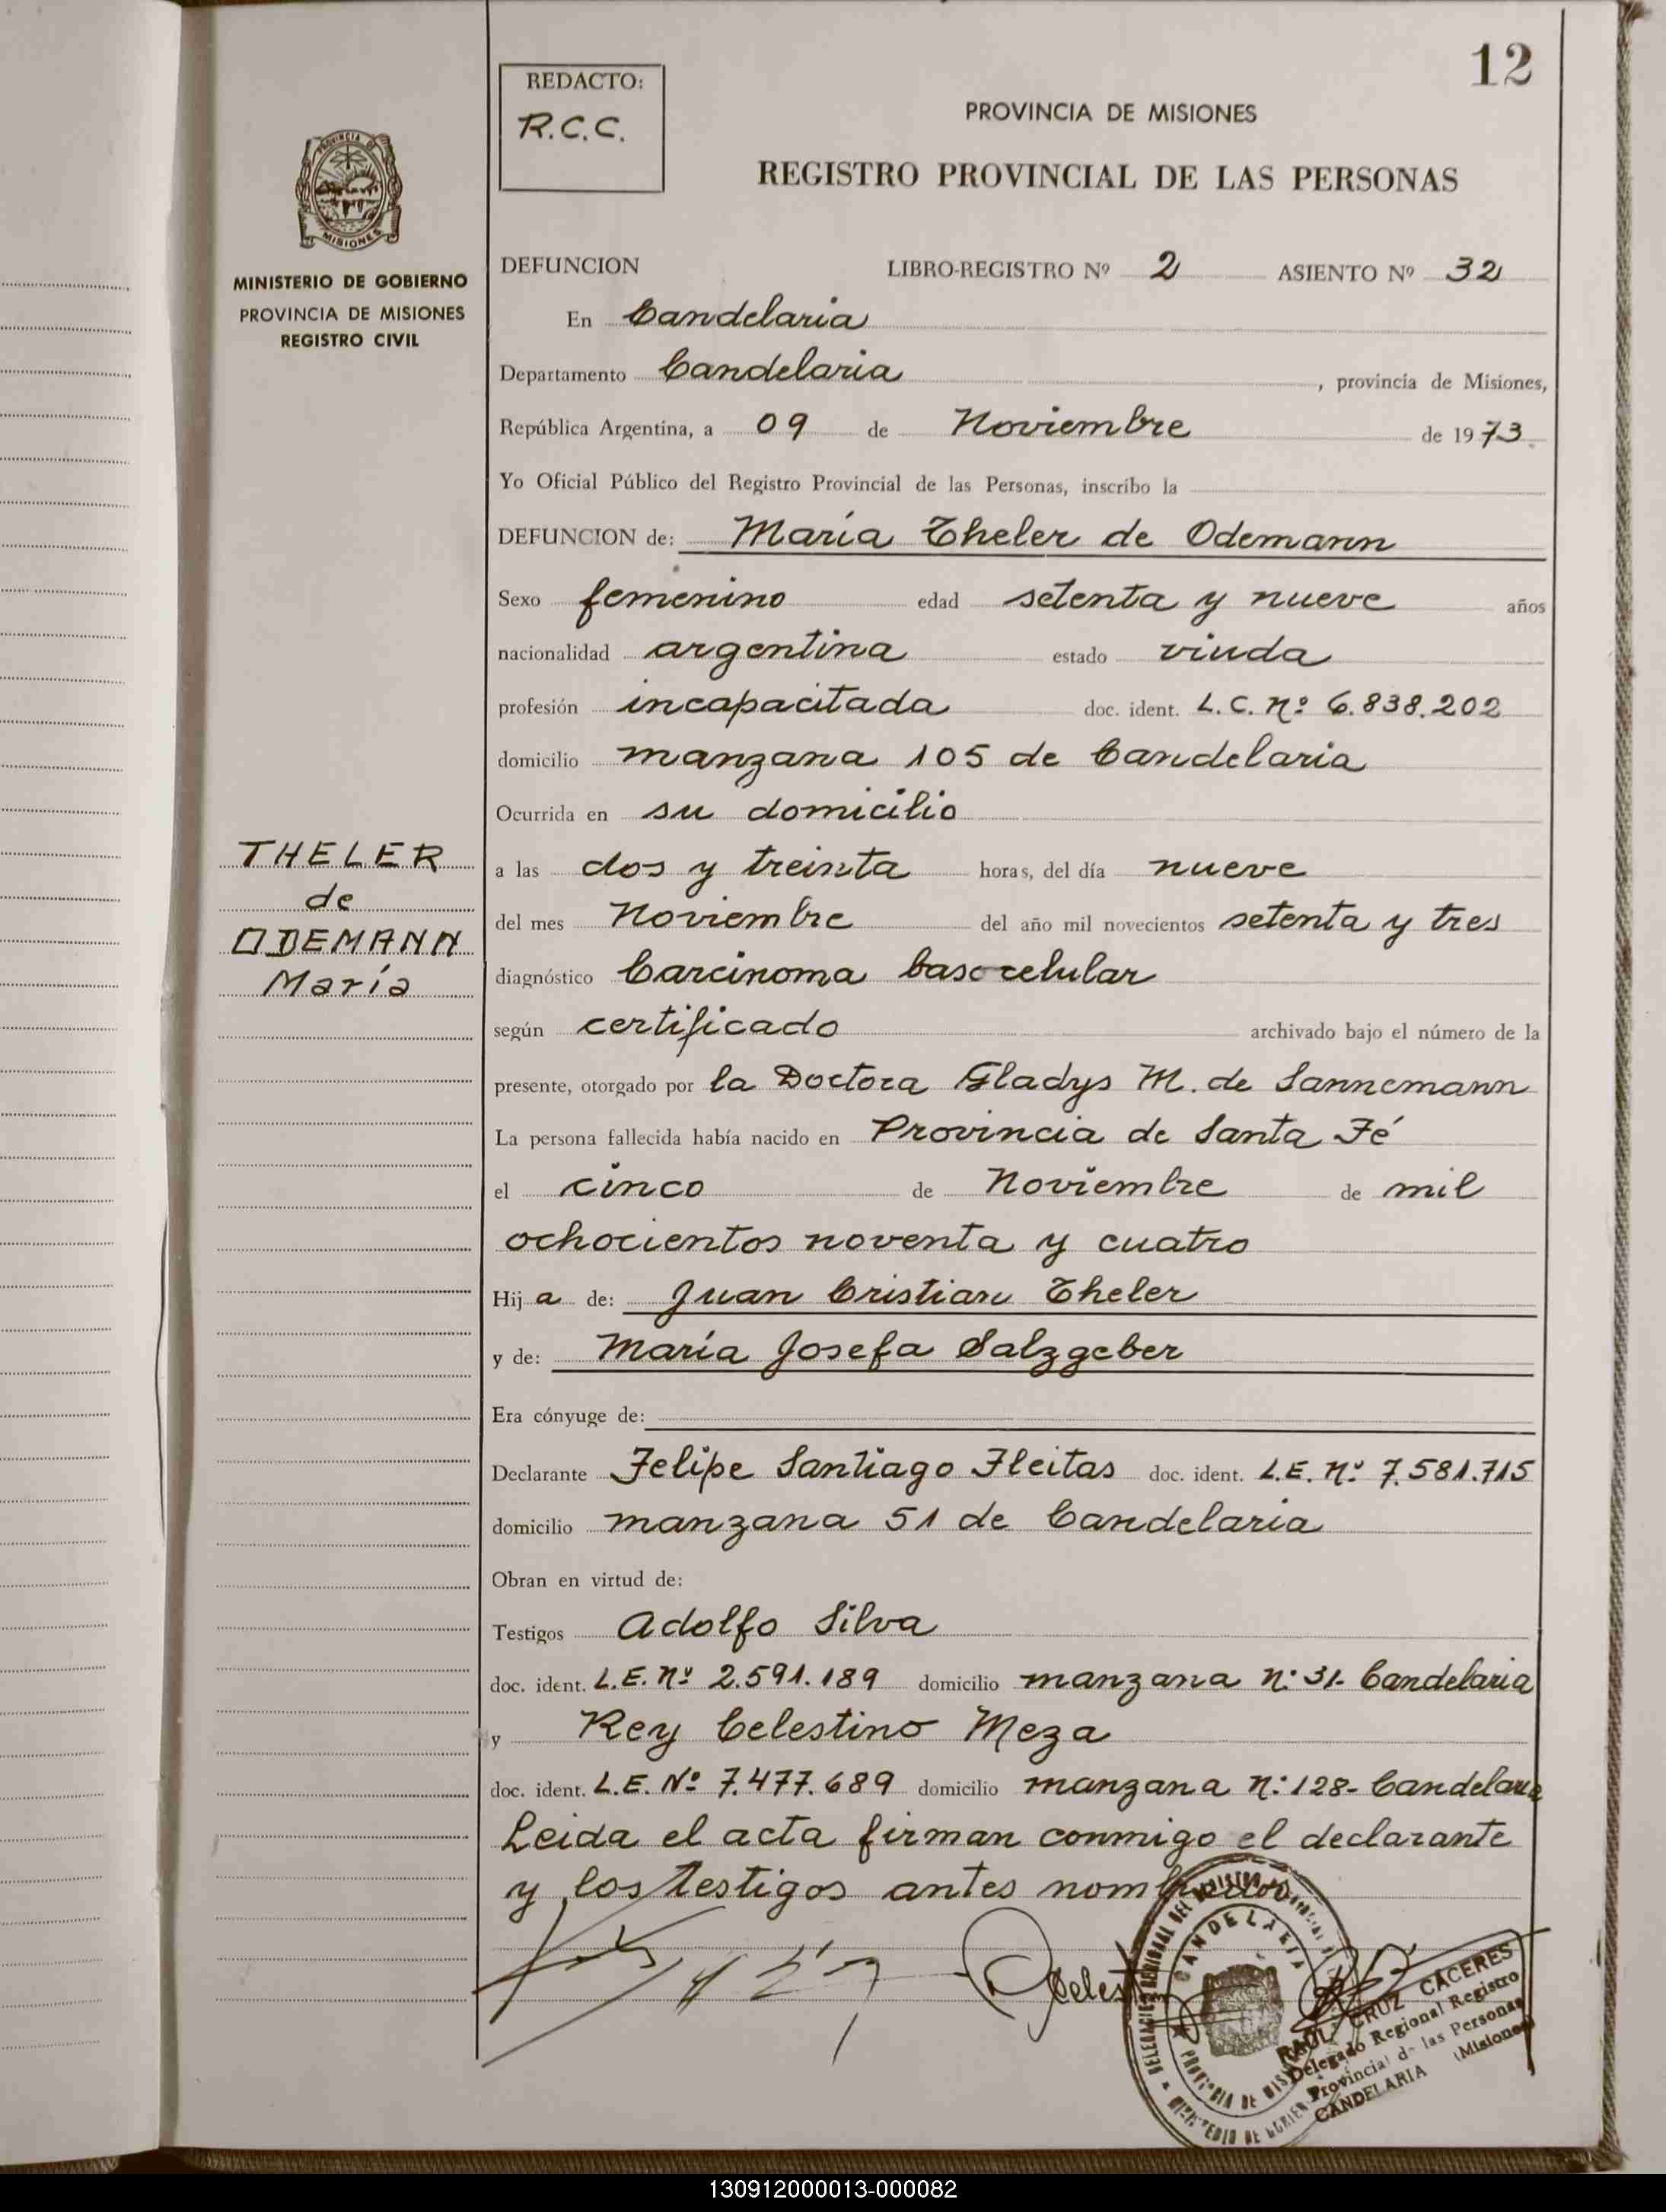 12
REDACTO:
R.C.C.
PROVINCIA DE MISIONES
REGISTRO PROVINCIAL DE LAS PERSONAS
PROVINCIA DE
MISIONES
MINISTERIO DE GOBIERNO
PROVINCIA DE MISIONES
REGISTRO CIVIL
DEFUNCION LIBRO-REGISTRO Nº 2 ASIENTO Nº 32
En Candelaria
Departamento Candelaria, provincia de Misiones,
República Argentina, a 09 de Noviembre de 1973.
Yo Oficial Público del Registro Provincial de las Personas, inscribo la
DEFUNCION de: María Theler de Odemann
Sexo femenino edad setenta y nueve años
nacionalidad argentina estado viuda
profesión incapacitada doc. ident. L.C. Nº 6.838.202
domicilio manzana 105 de Candelaria
Ocurrida en su domicilio
THELER
de
ODEMANN
María
a las dos y treinta horas, del día nueve
del mes Noviembre del año mil novecientos setenta y tres
diagnóstico Carcinoma basocelular
según certificado archivado bajo el número de la
presente, otorgado por la Doctora Gladys M. de Sannemann
La persona fallecida había nacido en Provincia de Santa Fé
el cinco de Noviembre de mil
ochocientos noventa y cuatro
Hija de: Juan Cristian Theler
y de: María Josefa Salzgeber
Era cónyuge de:
Declarante Felipe Santiago Fleitas doc. ident. L.E. Nº 7.581.715
domicilio manzana 51 de Candelaria
Obran en virtud de:
Testigos Adolfo Silva
doc. ident. L.E. Nº 2.591.189 domicilio manzana n: 31- Candelaria
y Rey Celestino Meza
doc. ident. L.E. Nº 7.477.689 domicilio manzana n: 128- Candelaria
Leida el acta firman conmigo el declarante
y los testigos antes nombrados
CANDELARIA
PROVINCIA DE MISIONES
RAUL CRUZ CACERES
Delegado Regional Registro
Provincial de las Personas
CANDELARIA (Misiones)
130912000013-000082